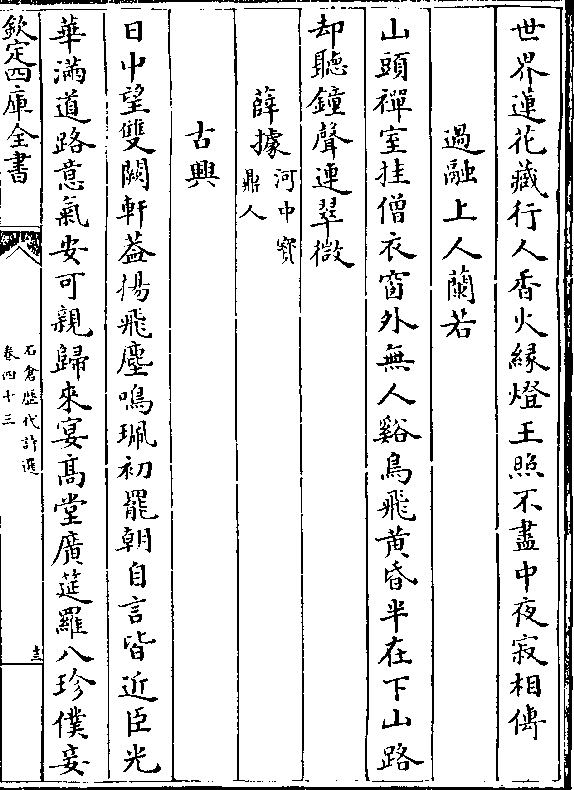 世界蓮花藏行人香火緣燈王照不盡中夜寂相傳
過融上人蘭若
山頭禪室挂僧衣窗外無人谿鳥飛黄昏半在下山路
却聽鐘聲連翠微
薛據河中寳鼎人
古興
日中望雙闕軒葢揚飛塵鳴珮初罷朝自言皆近臣光
華滿道路意氣安可親歸來宴髙堂廣筵羅八珍僕妾
欽定四庫全書
石倉歴代詩選
卷四十三